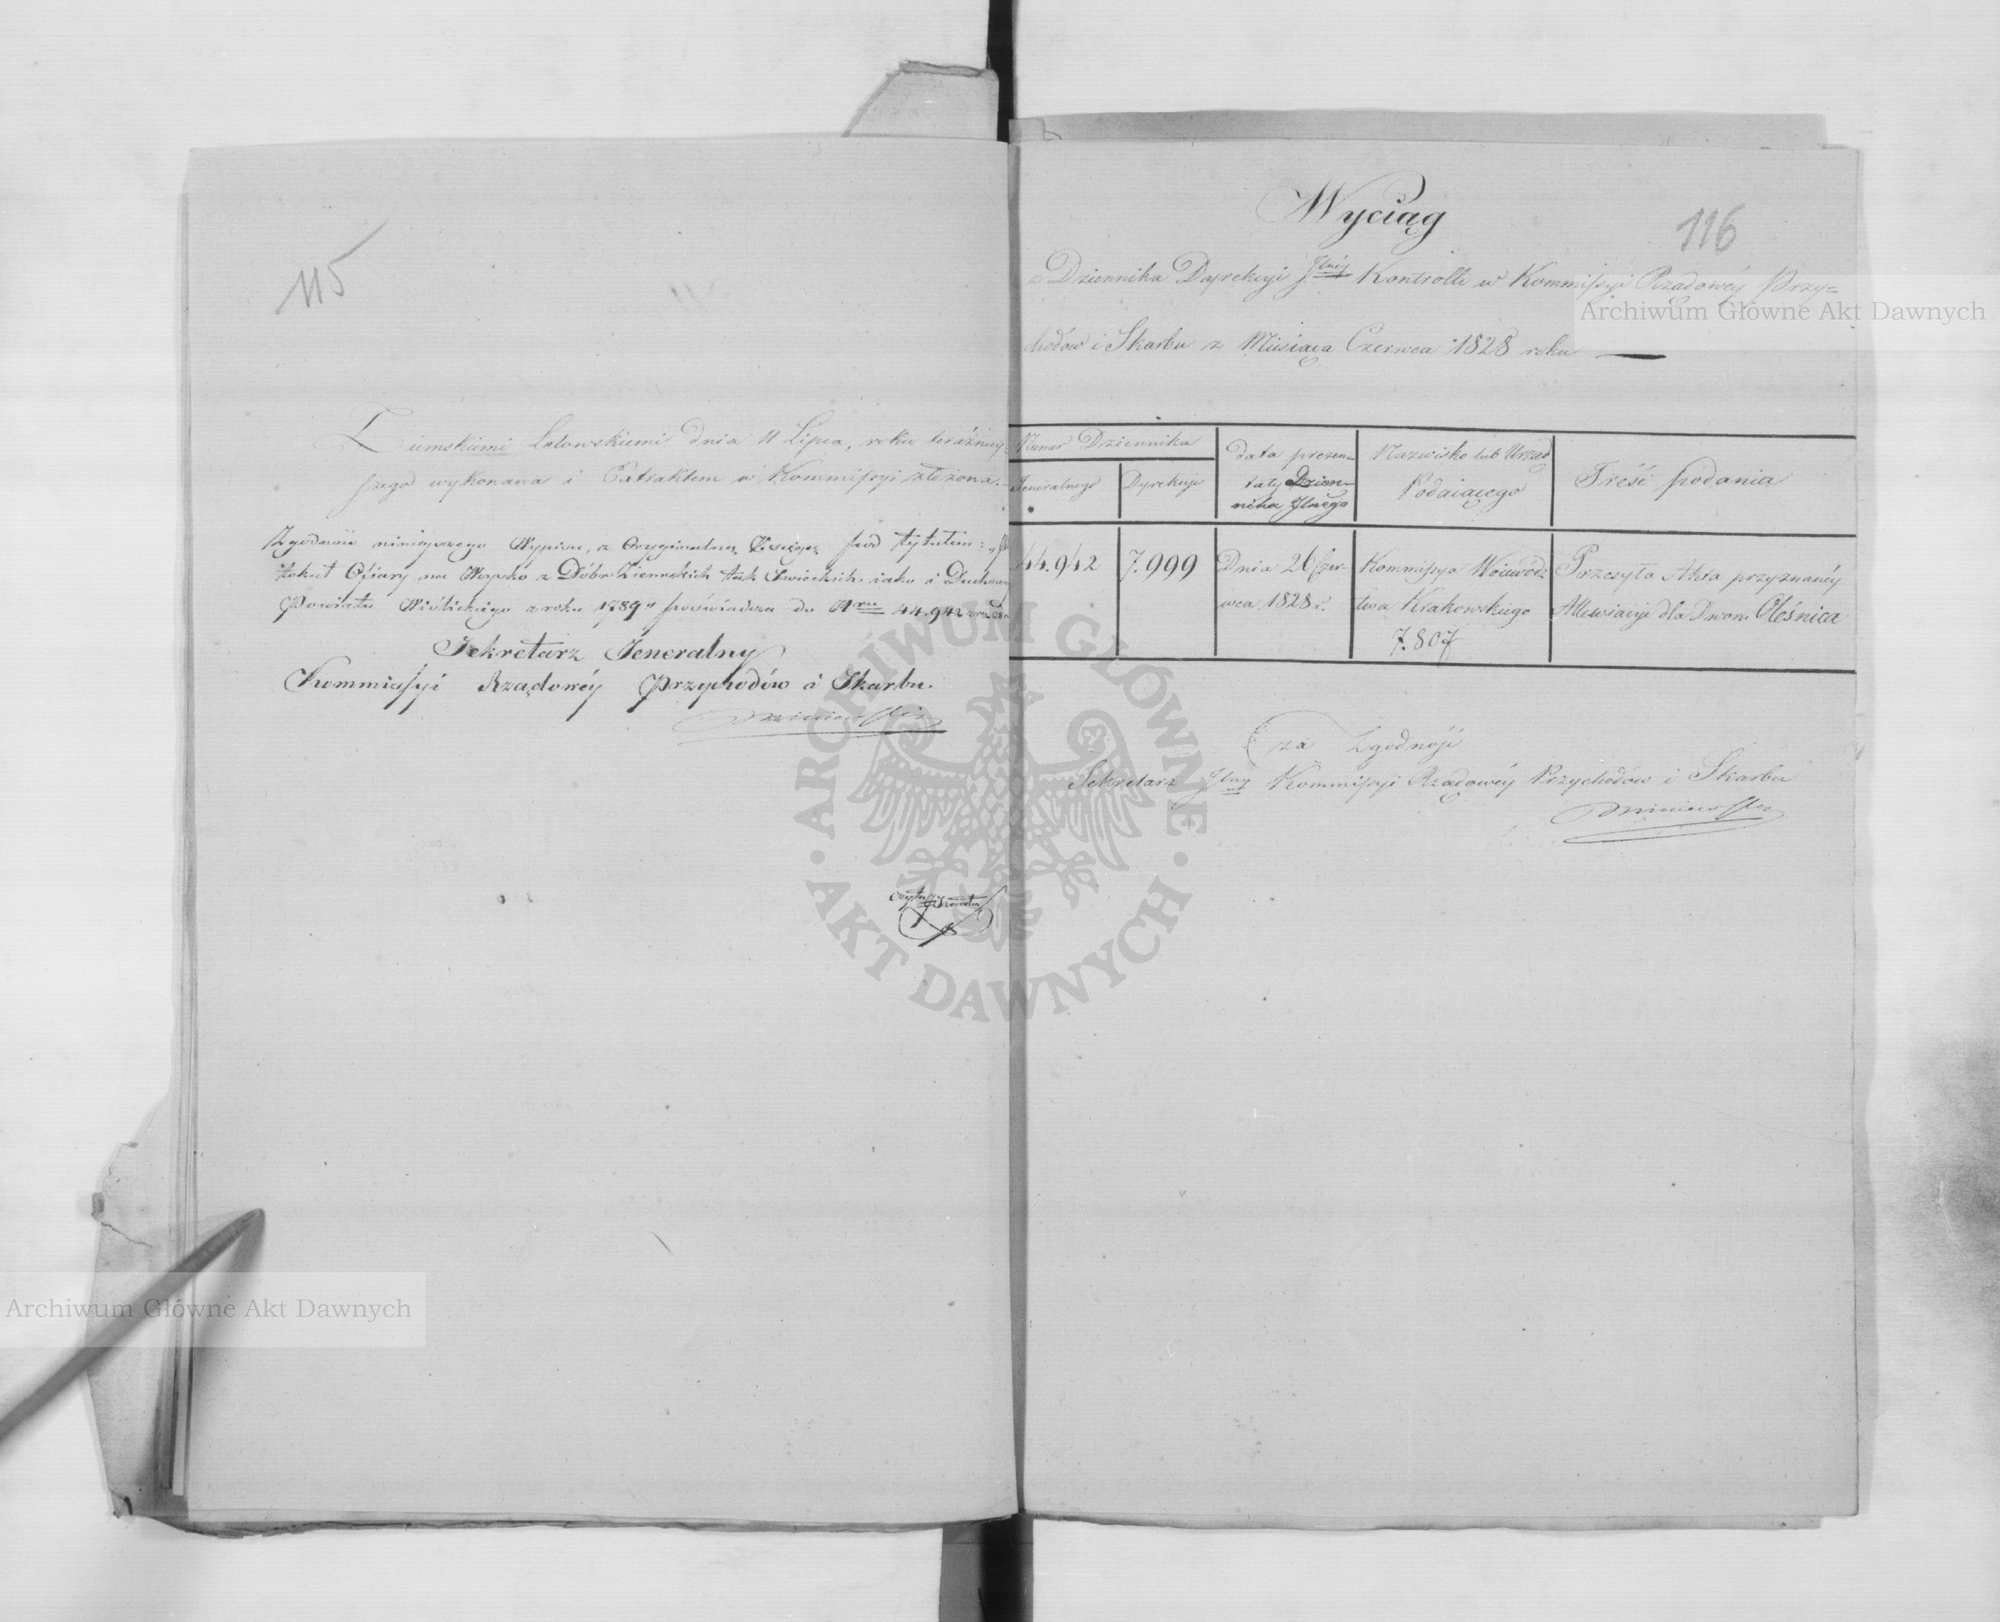 115
Ziemskiemi Lelowskiemi dnia 11 Lipca, roku teraźniey=
szego wykonana i Extraktem w Kommissyi złożona.
Zgodność ninieyszego Wypisu, z Oryginalną Księgą pod tytułem:
Ofiary na Woysko z Dóbr Ziemskich tak Swieckich iako i
Powiatu Wiślickiego z roku 1789" poświadcza do Nru 44.942
Sekretarz Jeneralny
Kommissyi Rządowéy Przychodów i Skarbu.
116
Wyciąg
z Dziennika Dyrekcyi Jlnéy Kontrolli w Kommissyi Rządowéy Przy=
chodów i Skarbu z Miesiąca Czerwca 1828 roku
Numer Dziennika
Jeneralnego
Dyrekcyi
data prezen=
taty Dzien=
nika Jlnego
Nazwisko lub Urząd
Podaiącego
Treść podania
44.942
7.999
Dnia 26 Czer=
wca 1828 r.
Kommissya Woiewódz
twa Krakowskiego
7.807
Przesyła Akta przyznanéy
Allewiacyi dla Dworu Oleśnica
za Zgodność
Sekretarz Jlny Kommissyi Rządowéy Przychodów i Skarbu
Archiwum Główne Akt Dawnych
Archiwum Główne Akt Dawnych
ARCHIWUM GŁÓWNE · AKT DAWNYCH ·